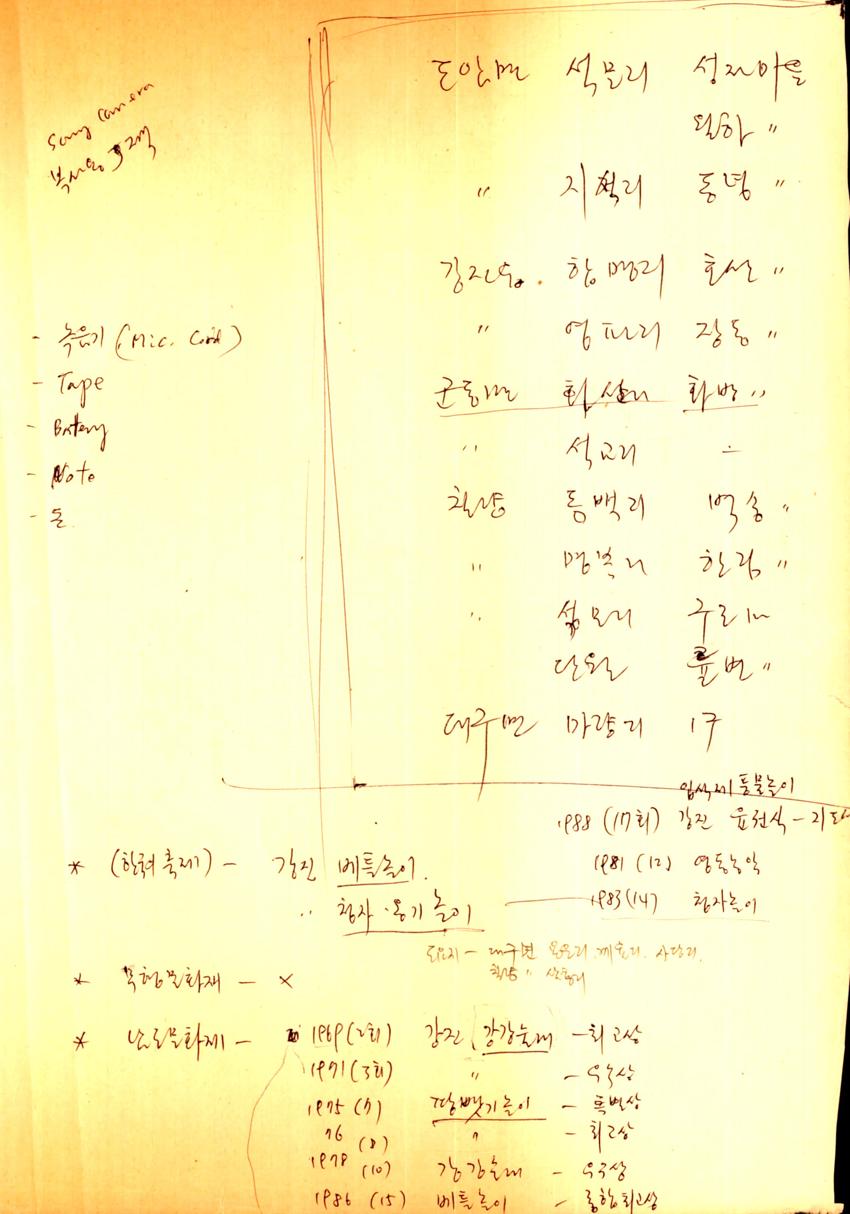 Sony Camera
도암면 석문리 성자마을
월하 〃
〃 지석리 동녕 〃
강진읍. 학명리 호산 〃
〃 영파리 장동 〃
군동면 화산리 화방 〃
〃 석교리 ÷
칠량 동백리 벽송 〃
〃 명주리 한림 〃
〃 삼모리 구로
단월 율변 〃
대구면 마량리 1구
- 녹음기 (Mic. Cord)
- Tape
- Battery
- Note
- 돈
입석제 풍물놀이
1988 (17회) 강진
1981 (12) 영동농악
1983 (14) 청자놀이
* (한려축제) - 강진 베틀놀이.
〃 청자·옹기놀이
도요지 - 대구면 용운리. 계율리. 사당리.
칠량 〃 삼흥리
* 무형문화재 - ×
* 남도문화제 - 1969 (2회) 강진 강강술래 - 최고상
1971 (3회) 〃 - 우수상
1975 (7) 땅뺏기놀이 - 특별상
76 (8) 〃 - 최고상
1978 (10) 강강술래 - 우수상
1986 (15) 베틀놀이 - 종합최고상